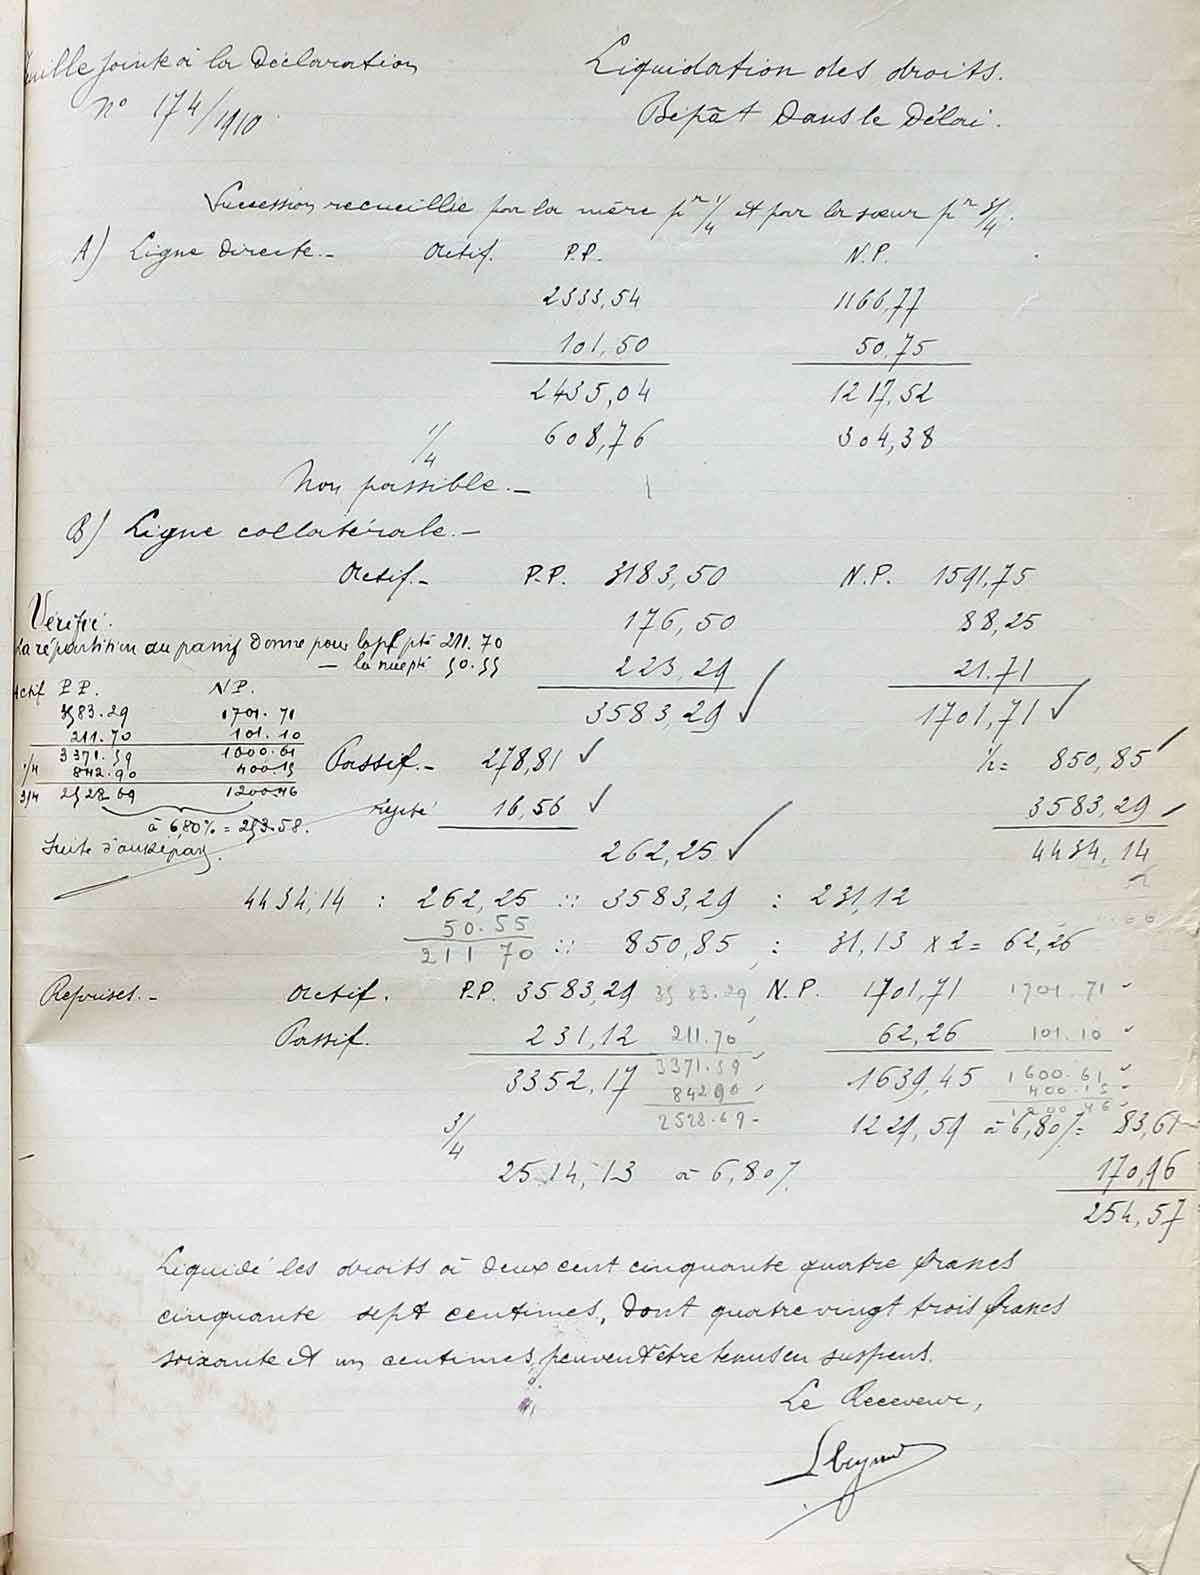 Feuille jointe à la Déclaration
N° 174/1910
Liquidation des droits.
Dépôt Dans le Délai.
Succession recueillie par la mère pr 1/4 et par la sœur pr 3/4.
A) Ligne directe.- Actif. P.P. N.P.
2333,54 1166,77
101,50 50,75
2435,04 1217,52
1/4 608,76 304,38
Non passible.-
B) Ligne collatérale.-
Actif.- P.P. 3183,50 N.P. 1591,75
176,50 88,25
223,29 21.71
3583,29 1701,71
Passif.- 278,81 1/2 = 850,85
rejeté 16,56 3583,29
262,25 4434,14
Vérifié.
La répartition du passif Donne pour la pl pté 211.70
— la nue pté 50.55
Actif P.P. N.P.
3583.29 1701.71
211.70 101.10
3371.59 1600.61
1/4 842.90 400.15
3/4 2528.69 1200.46
à 6,80% = 253.58.
4434,14 : 262,25 :: 3583,29 : 231,12
50.55
211 70 :: 850,85 : 31,13 x 2 = 62,26
Reprises.- Actif. P.P. 3583,29 3583.29 N.P. 1701,71 1701.71
Passif. 231,12 211.70 62,26 101.10
3352,17 3371.59 1639,45 1600.61
842.90 400.15
3/4 2528.69 1229,59 1200.46 à 6,80% = 83,61
2514,13 à 6,80% 170,96
254,57
Liquidé les droits à deux cent cinquante quatre francs
cinquante sept centimes, dont quatre vingt trois francs
soixante et un centimes, peuvent être tenus en suspens.
Le Receveur,